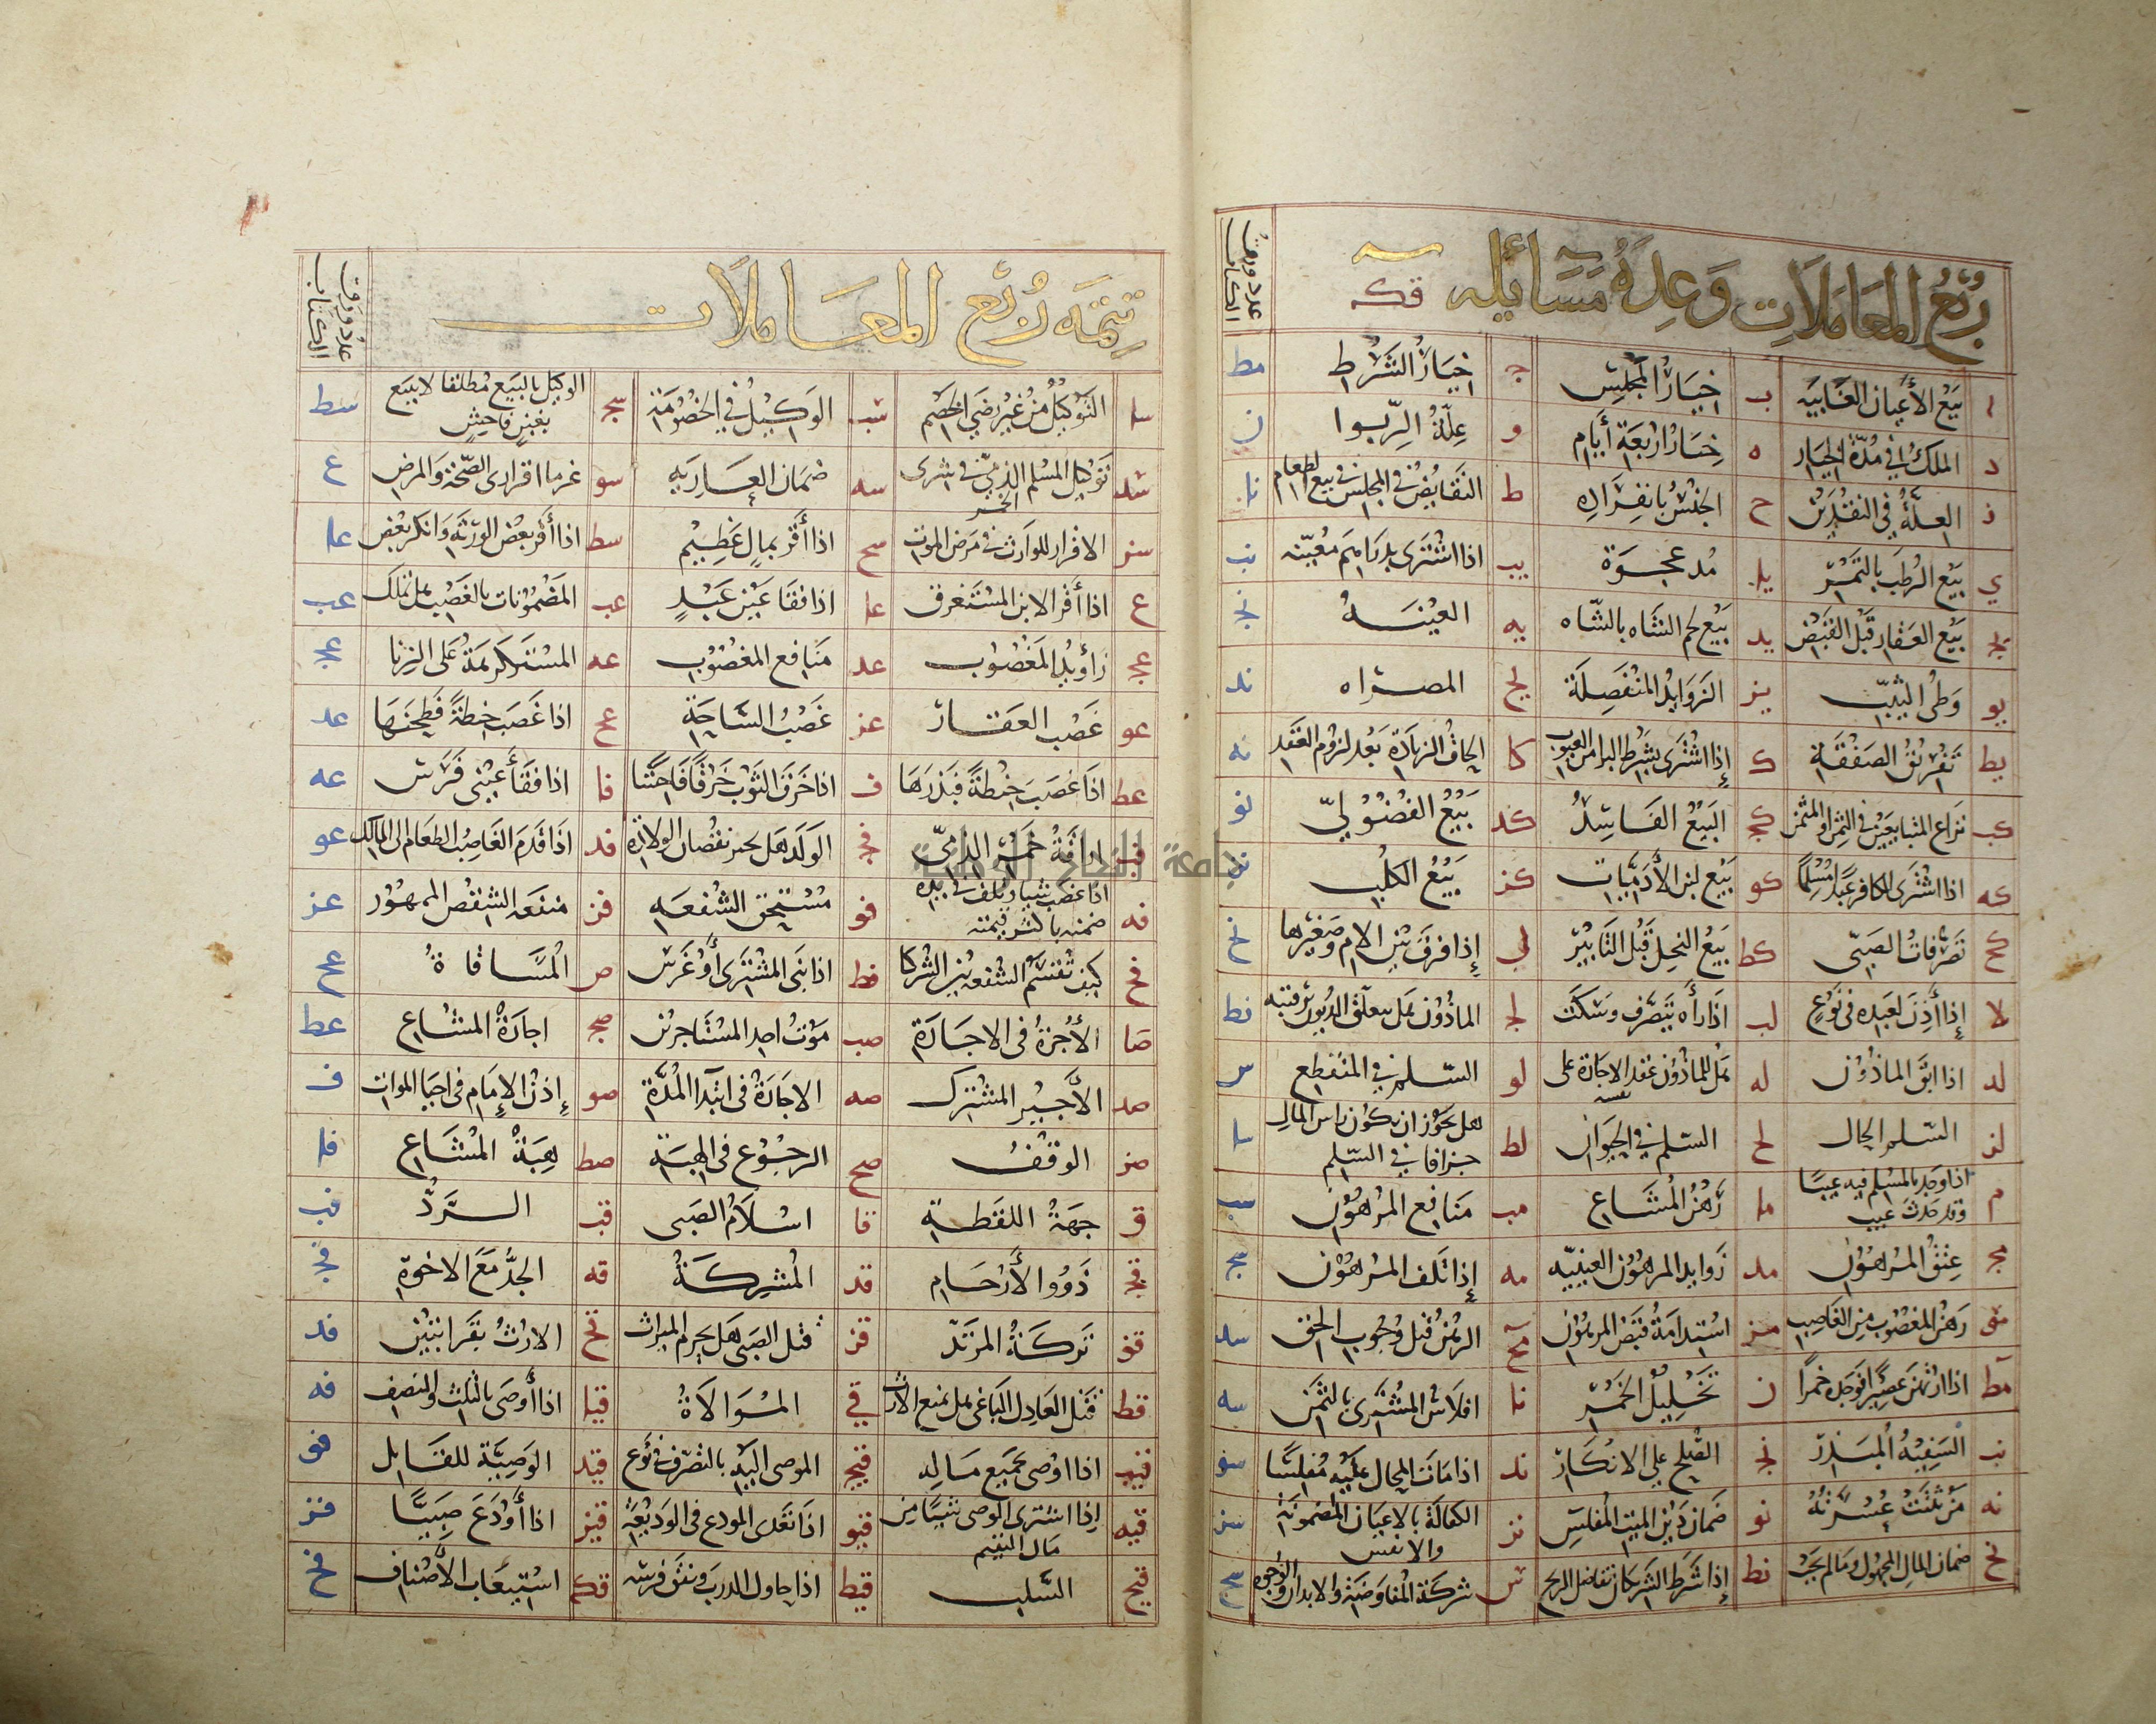 ربع المعاملات وعدة مسائله قك
عدد ورق الكتاب
ا بيع الأعيان الغايبه ب خيار المجلس ج خيار الشرط مط
د الملك في مدة الخيار ه خيار اربعة أيام و علة الربوا ن
ز العلة في النقدين ح الجنس بانفراده ط التقابض في المجلس في بيع الطعام نا
ي بيع الرطب بالتمر يا مد عجوة يب اذا اشترى بدراهم معينه نب
يج بيع العقار قبل القبض يد بيع لحم الشاه بالشاه يه العينه نج
يو وطى الثيب يز الزوايد المنفصلة يح المصراه ند
يط تفريق الصفقة ك إذا اشترى بشرط البرا من العيوب كا الحاق الزيادة بعد لزوم العقد نه
كب نزاع المتبايعين في الثمن او المثمن كج البيع الفاسد كد بيع الفضولي نو
كه اذا اشترى الكافر عبدا مسلما كو بيع لبن الآدميات كز بيع الكلب نز
كح تصرفات الصبي كط بيع النخيل قبل التابير ل إذا فرق بين الام وصغيرها نح
لا إذا أذن لعبده في نوع لب اذا رأه يتصرف وسكت لج الماذون هل يتعلق الديون برقبته نط
لد اذا ابق الماذون له هل للماذون عقد الاجارة على نفسه لو السلم في المنقطع س
لز السلم الحال لح السلم في الحيوان لط هل يجوز ان يكون راس المال جزافا في السلم سا
م اذا وجد بالمسلم فيه عيبا وقد حدث عيب ما رهن المشاع مب منافع المرهون سب
مج عتق المرهون مد زوايد المرهون العينيه مه إذا تلف المرهون سج
مو رهن المغصوب من الغاصب مز استدامة قبض المرهون مح الرهن قبل وجوب الحق سد
مط اذا ارتهن عصيرا فوجده خمرا ن تخليل الخمر نا افلاس المشترى بالثمن سه
نب السفيه المبذر نج الصلح على الانكار ند اذا مات المحال عليه مفلسا سو
نه من ثبتت عسرته نو ضمان دين الميت المفلس نز الكفالة بالاعيان المضمونة والانفس سز
نح ضمان المال المجهول وما لم يجب نط إذا شرط الشريكان تفاضل الربح س شركة المفاوضة والابدان والوجوه سح
تتمة ربع المعاملات
عدد ورق الكتاب
سا التوكيل من غير رضى الخصم سب الوكيل في الخصومة سج الوكيل بالبيع مطلقا لا يبيع بغبن فاحش سط
سد توكيل المسلم الذمي في شرى الخمر سه ضمان العاريه سو غرما اقرارى الصحة والمرض ع
سز الاقرار للوارث في مرض الموت سح اذا أقر بمال عظيم سط اذا أقر بعض الورثة وانكر بعض عا
ع اذا أقر الابن المستغرق عا اذا فقا عين عبد عب المضمونات بالغصب هل تملك عب
عج زوايد المغصوب عد منافع المغصوب عه المستكرهة على الزنا عج
عو غصب العقار عز غصب الساجة عح اذا غصب حنطة فطحنها عد
عط اذا غصب حنطة فبذرها ف اذا خرق الثوب خرقا فاحشا فا اذا فقأ عيني فرس عه
فب اراقة خمر الذمي فج الولد هل يجبر نقصان الولادة فد اذا قدم الغاصب الطعام الى المالك عو
فه اذا غصب شيا وتلف في يده ضمنه باكثر قيمته فو مستحق الشفعه فز منفعه الشقص الممهور عز
فح كيف تقسم الشفعه بين الشركا فط اذا بنى المشترى أو غرس ص المساقاة عح
صا الأجرة في الاجارة صب موت احد المستاجرين صج اجارة المشاع عط
صد الأجير المشترك صه الاجارة في ابتدا المدة صو إذن الإمام في احيا الموات ف
صز الوقف صح الرجوع في الهبة صط هبة المشاع فا
ق جهة اللقطة قا اسلام الصبى قب الرد فب
قج ذوو الأرحام قد المشركة قه الجد مع الاخوة فج
قو تركة المرتد قز قتل الصبى هل يحرم الميراث قح الارث بقرابتين فد
قط قتل العادل الباغي هل يمنع الارث قي الموالاة قيا اذا أوصى بالثلث والنصف فه
قيب اذا اوصى بجميع ماله قيج الموصى اليه بالتصرف في نوع قيد الوصية للقاتل فو
قيه إذا اشترى الوصى شيا من مال اليتيم قيو اذا تعدى المودع في الوديعة قيز اذا أودع صبيا فز
قيح السلب قيط اذا جاول الدرب ونفق فرسه قك استيعاب الأصناف فح
جامعة النجاح الوطنية